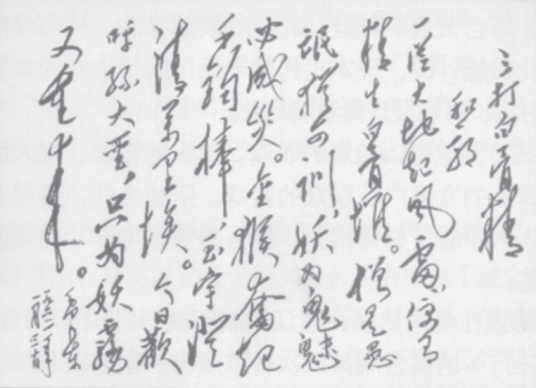 三打白骨精
一从大地起风雷,便有
精生白骨堆。僧是愚
氓犹可训,妖为鬼蜮
必成灾。金猴奋起
千钧棒,玉宇澄
清万里埃。今日欢
呼孙大圣,只为妖雾
又重来。